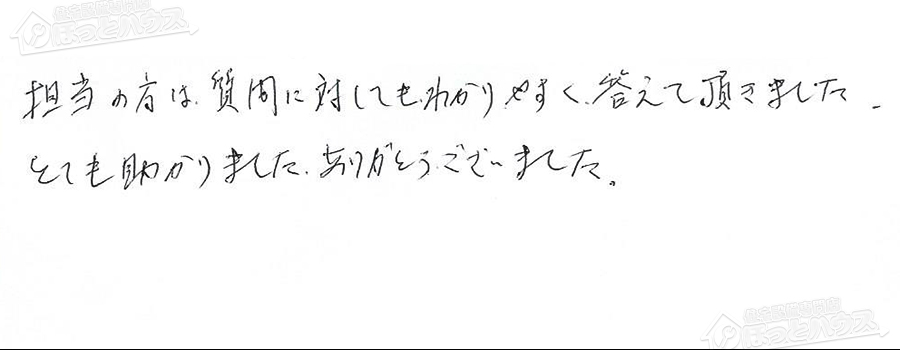 住宅設備専門店
ほっとハウス
担当の方は、質問に対してもわかりやすく、答えて頂きました。
とても助かりました、ありがとうございました。
住宅設備専門店
ほっとハウス